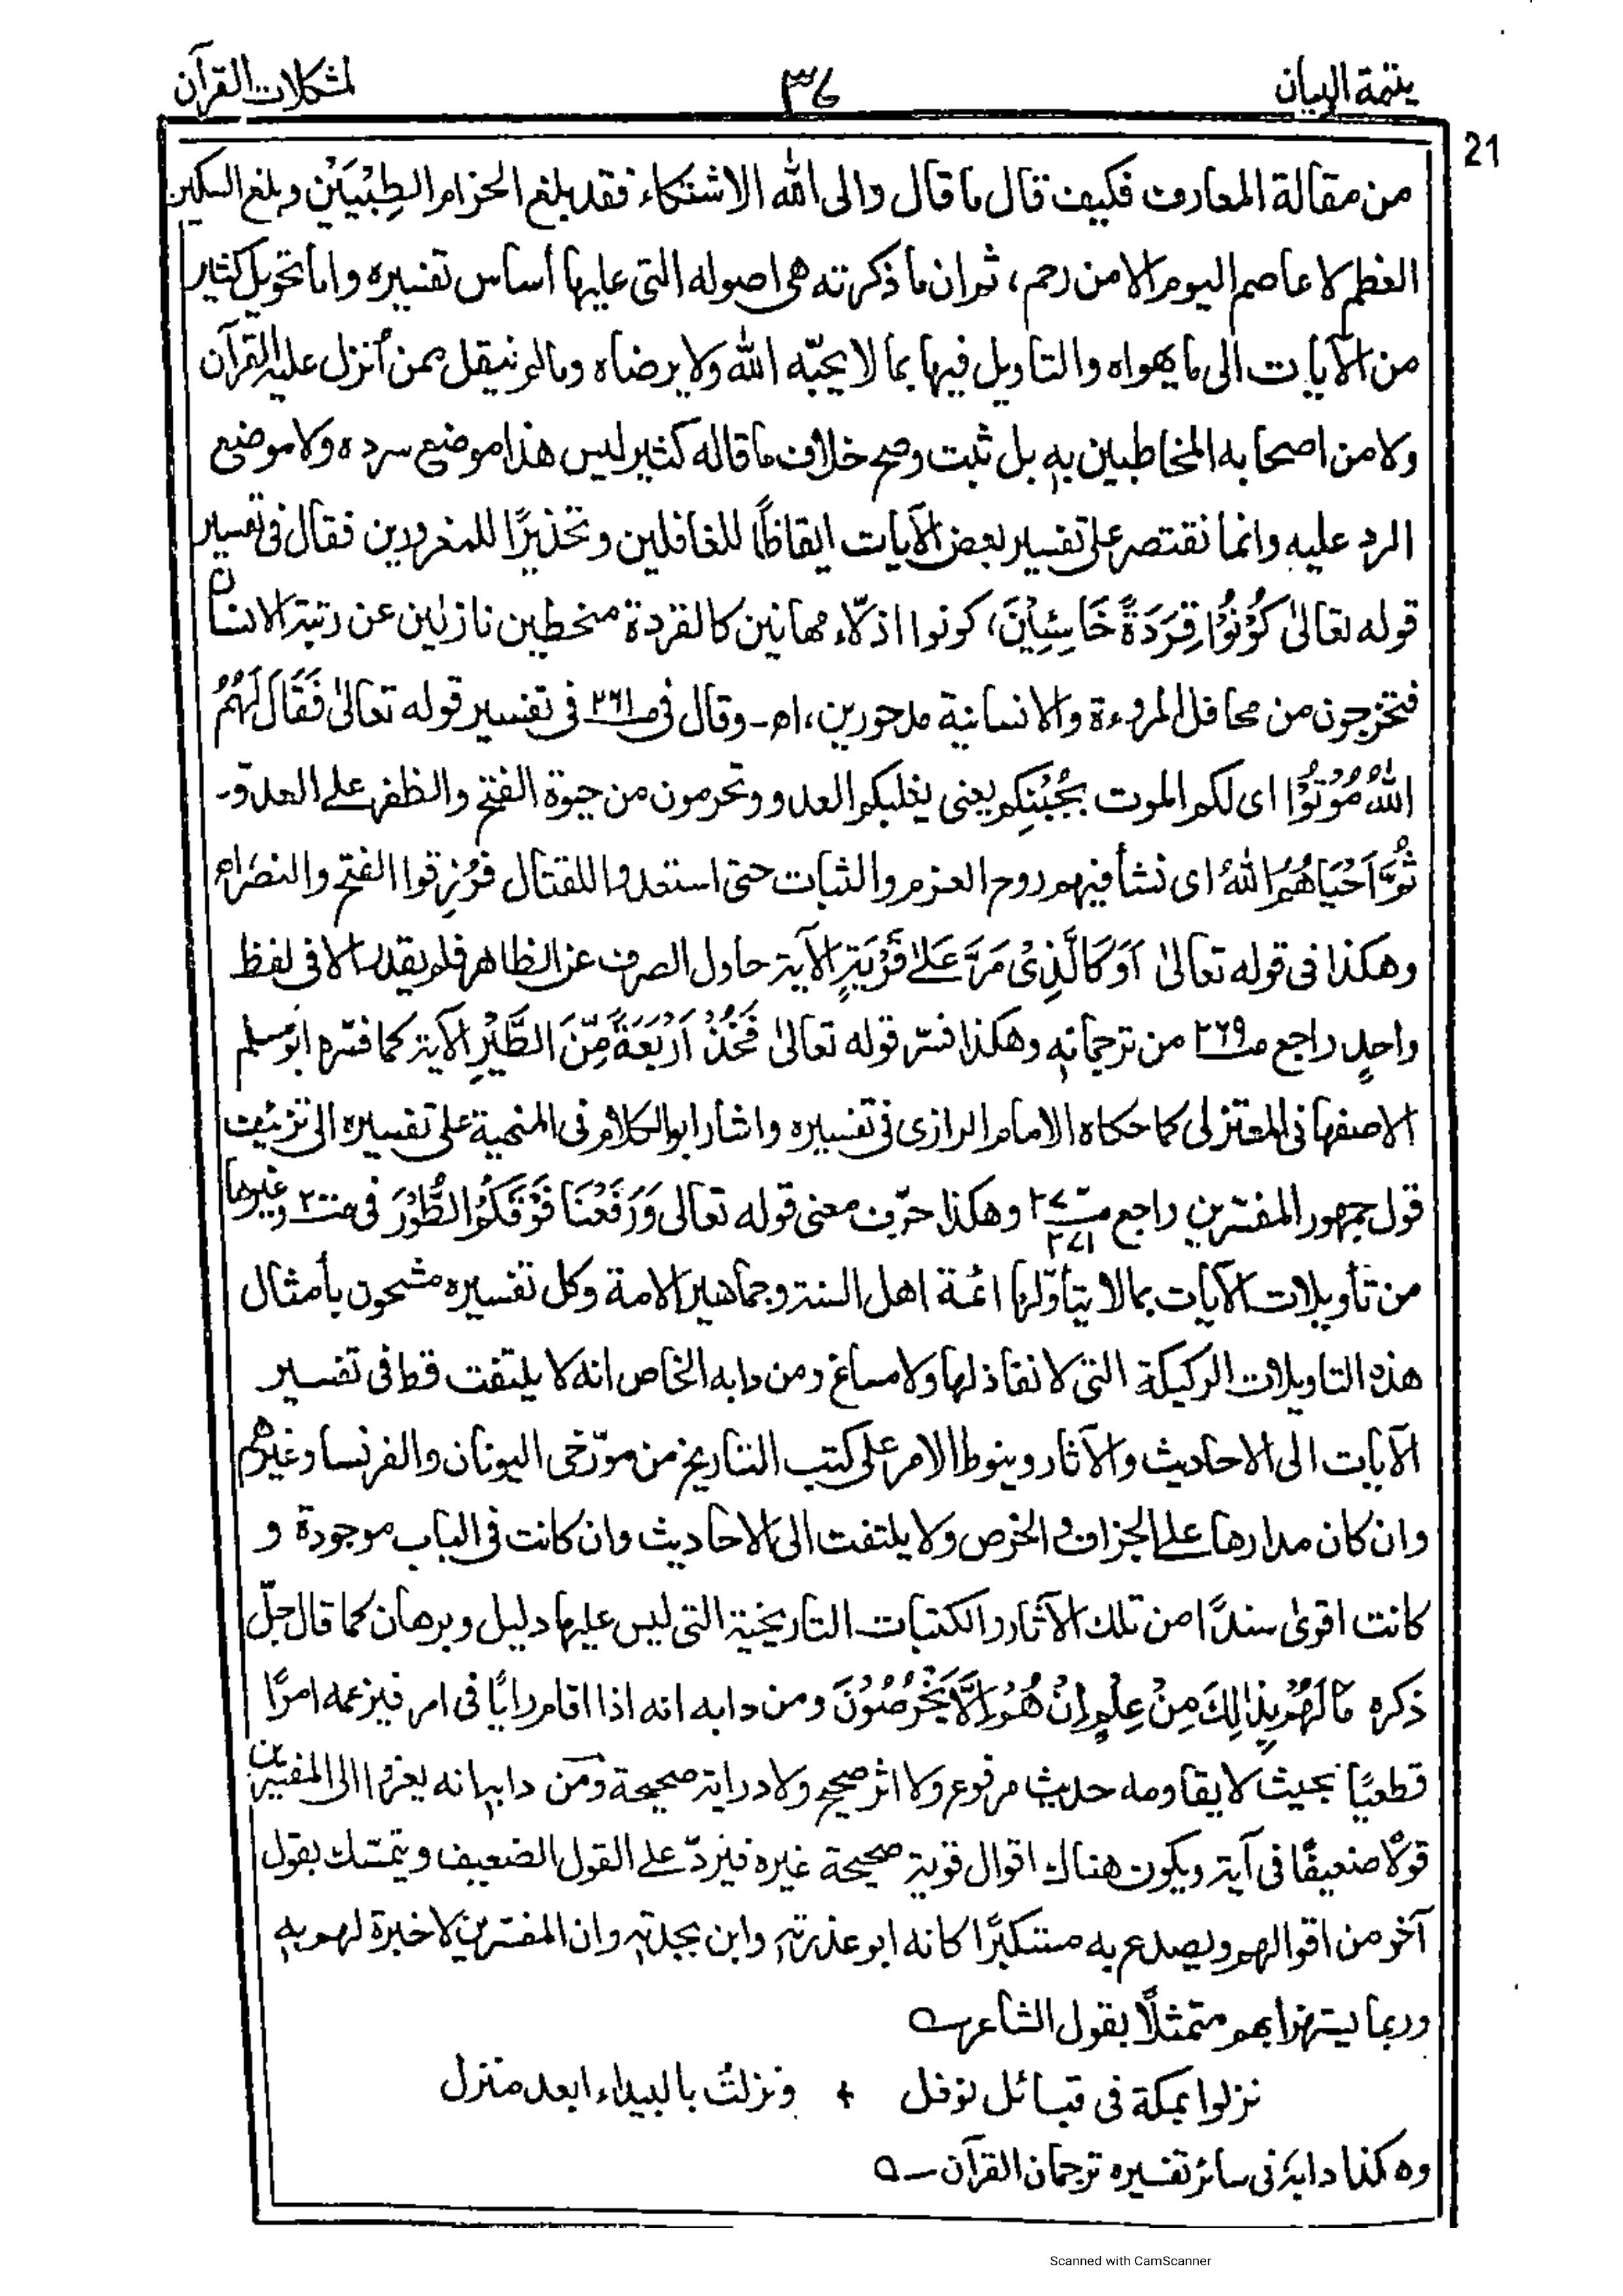 يتمة البيان
٣٤
لمشكلات القرآن
21
من مقالة المعارف فكيف قال ما قال والى الله الاشتكاء فقد بلغ الحزام الطِبْيَيْن وبلغ السكين
العظم لا عاصم اليوم الا من رحم، ثم ان ما ذكرته هى اصوله التى عليها أساس تفسيره واما تحويل كثير
من الآيات الى ما يهواه والتاويل فيها بما لا يحبّه الله ولا يرضاه وما لم ينقل عمن أنزل عليه القرآن
ولا من اصحابه المخاطبين به بل ثبت وصح خلاف ما قاله كثير ليس هذا موضع سرده ولا موضع
الرد عليه وانما نقتصر على تفسير بعض الآيات ايقاظًا للغافلين وتحذيرًا للمغرورين فقال فى تفسير
قوله تعالىٰ كُوْنُوْا قِرَدَةً خَاسِئِيْنَ، كونوا اذلّاء مهانين كالقردة منحطين نازلين عن رتبة الانسان
فتخرجون من محافل المروءة والانسانية مدحورين، اه‍ـ وقال فى صـ٢٦١ فى تفسير قوله تعالىٰ فَقَالَ لَهُمُ
اللهُ مُوْتُوْا اى لكم الموت بجُبْنِكم يعنى يغلبكم العدو وتحرمون من حيوة الفتح والظفر على العدوّ۔
ثُمَّ اَحْيَاهُمُ اللهُ اى نشأ فيهم روح العزم والثبات حتى استعدوا للقتال فرُزِقوا الفتح والنصر اه
وهكذا فى قوله تعالىٰ اَوْ كَالَّذِىْ مَرَّ عَلٰى قَرْيَةٍ الآية حاول الصرف عن الظاهر فلم يقدر الا فى لفظ
واحدٍ راجع صـ٢٦٩ من ترجمانه وهكذا فسّر قوله تعالىٰ فَخُذْ اَرْبَعَةً مِّنَ الطَّيْرِ الآية كما فسّره ابو مسلم
الاصفهانى المعتزلى كما حكاه الامام الرازى فى تفسيره واشار ابو الكلام فى المنهية على تفسيره الى تزئيف
قول جمهور المفسّرين راجع صـ٢٧٠ ٢٧١ وهكذا حرّف معنى قوله تعالى وَرَفَعْنَا فَوْقَكُمُ الطُّوْرَ فى وغيرها
من تأويلات الآيات بما لا يتأوّلها ائمة اهل السنة وجماهير الامة وكل تفسيره مشحون بأمثال
هذه التاويلات الركيكة التى لا نفاذ لها ولا مساغ ومن دابه الخاص انه لا يلتفت قط فى تفسير
الآيات الى الاحاديث والآثار وينوط الامر على كتب التاريخ من مورّخى اليونان والفرنسا وغيرهم
وان كان مدارها على الجزاف والخرص ولا يلتفت الى الاحاديث وان كانت فى الباب موجودة و
كانت اقوىٰ سندًا من تلك الآثار والكتبات التاريخية التى ليس عليها دليل وبرهان كما قال جلّ
ذكره مَا لَهُمْ بِذٰلِكَ مِنْ عِلْمٍ اِنْ هُمْ اِلَّا يَخْرُصُوْنَ ومن دابه انه اذا اقام رايًا فى امر فيزعمه امرًا
قطعيًا بحيث لا يقاومه حديث مرفوع ولا اثر صحيح ولا دراية صحيحة ومن دابه انه يعزوا الى المفسرين
قولًا ضعيفًا فى آية ويكون هناك اقوال قوية صحيحة غيره فيردّ على القول الضعيف ويتمسّك بقول
آخر من اقوالهم ويصدع به مستكبرًا كانه ابو عذرته وابن بجدته وان المفسّرين لا خبرة لهم به
وربما يستهزا بهم متمثلًا بقول الشاعر ؎
نزلوا بمكة فى قبائل نوفل + ونزلتُ بالبيداء ابعد منزل
وهكذا دابه فى سائر تفسيره ترجمان القرآن ۔
Scanned with CamScanner